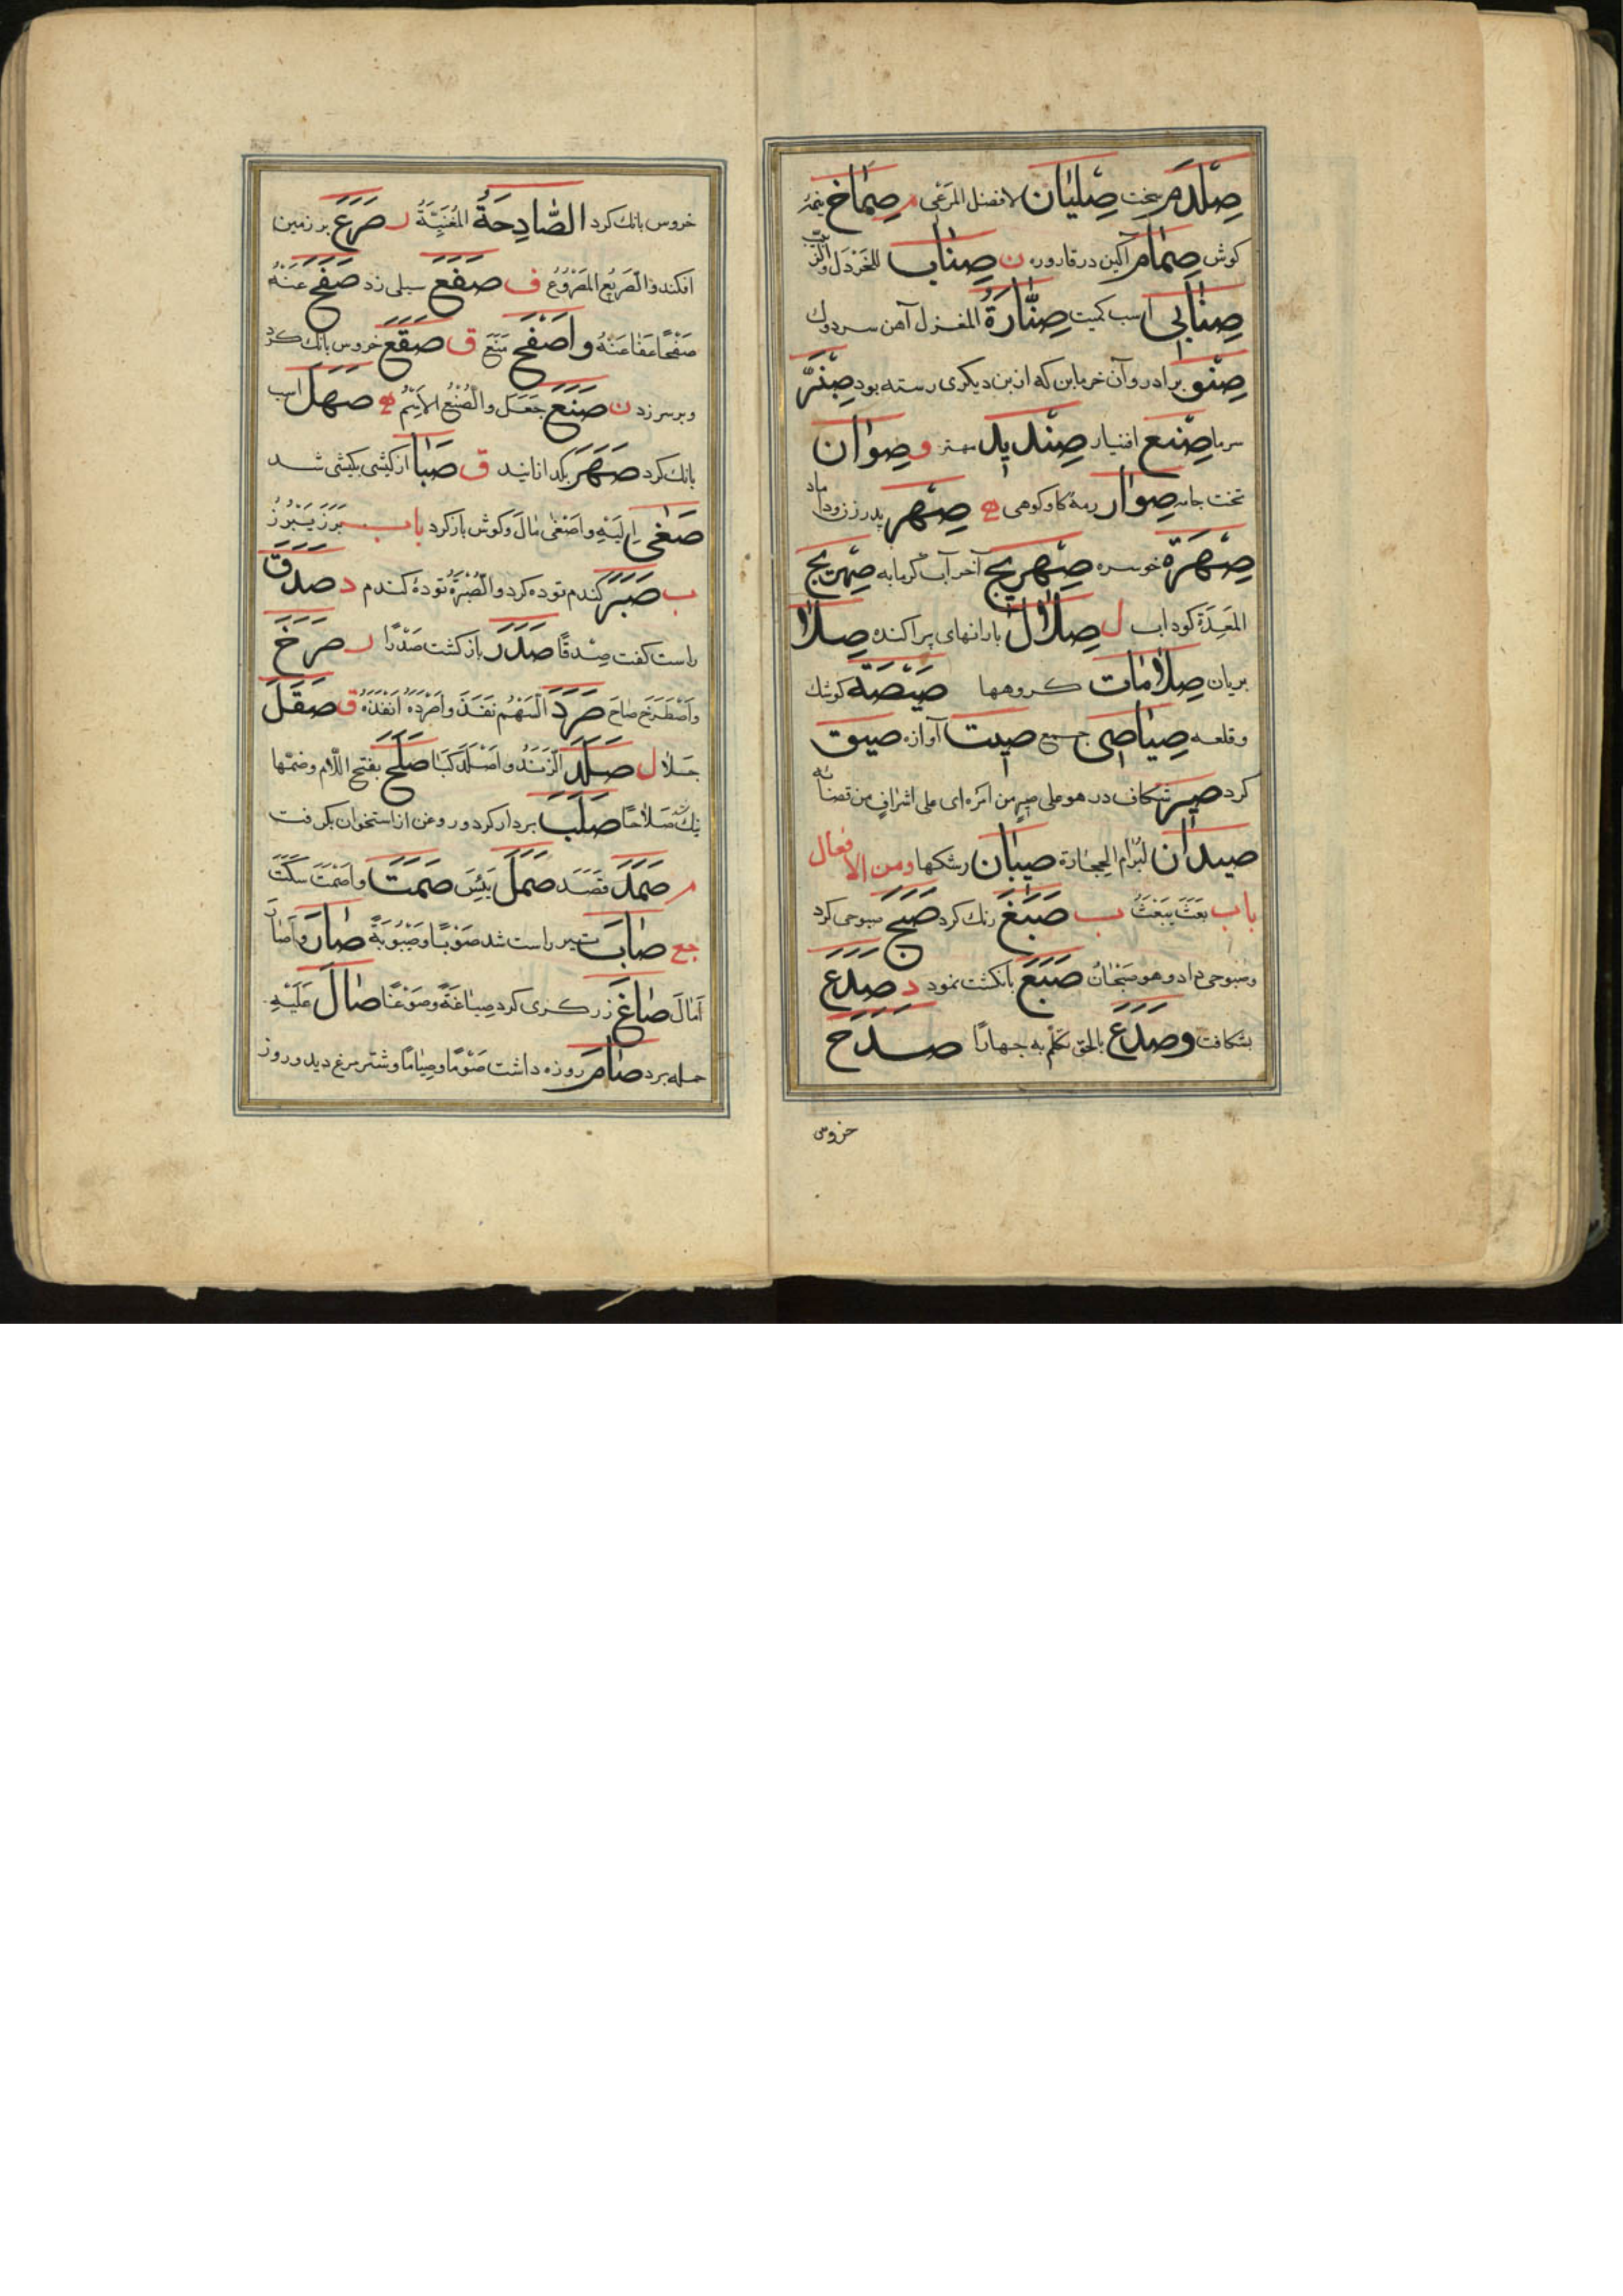 صِلْدَم سخت صِلِيَان لافضل المَرْعَى م صِمَاخ
كوش صِمَام آكين در قاروره ن صِنَاب للخَرْدَل والزَّبيب
صِنَابِى اسب كميت صِنَّارَةُ المغزل آهن سر دوك
صِنْو برادر وآن خرمابن كه از بن ديكرى رسته بود صِنَّبْر
سرما صِنْع صِنْدِيد مهتر و صِوَان
تخت جامه صِوَار رمهٔ كاو كوهى ه صِهْر پدر زن و داماد
صِهْرَة خوسره صِهْرِيج آخر آب كرمابه صِهْرِيج
المَعِدَة كوداب ل صِلَال بارانهاى پراكنده صِلَا
بريان صِلَامَات كروهها صِيْصَة كوشك
وقلعه صَيَاصِى جمع صِيت آوازه صِيق
كرد صِير شكاف در هو على صِيرٍ من امره اى على اشرافٍ من قضائه
صِيدَان لبُرَام الحِجَارَة صِيبَان رشكها ومن الافعال
باب بَعَثَ يَبْعَثُ ب صَبَغَ رنك كرد صَبَحَ صبوحى كرد
وصَبوحى داد وهو صَبْحَانُ صَبَعَ بانكشت نمود د صَدَعَ
بشكافت وصَدَعَ بالحق تكلم به جهارًا صَدَحَ
خروس
خروس بانك كرد الصَّادِحَةُ المُغَنِّيَةُ ر صَرَعَ بر زمين
افكند والصَّرِيعُ المَصْرُوعُ ف صَفَعَ سيلى زد صَفَحَ عَنْهُ
صَفْحًا عَفَا عَنْهُ واَصْفَحَ مَنَعَ ق صَقَعَ خروس بانك كرد
وبر سر زد ن صَنَعَ جَعَلَ والصُّنْعُ الاِسْم ه صَهَلَ اسب
بانك كرد صَهَرَ بكدازانيد ق صَبَأ از كيشى بكيشى شد
صَغَى اِلَيْهِ واَصْغَى مَالَ وكوش باز كرد باب بَرَزَ يَبْرُزُ
ب صَبَرَ كندم توده كرد والصُّبْرَةُ تودهٔ كندم د صَدَقَ
راست كفت صِدْقًا صَدَرَ باز كشت صَدْرًا ر صَرَخَ
واَصْطَرَخَ صَاحَ صَرَدَ السَّهْمُ نَفَذَ واَصْرَدَهُ اَنْفَذَهُ ق صَقَلَ
جَلَا ل صَلَدَ الزَّنْدُ واَصْلَدَ كَبَا صَلَحَ بفتح اللام وضمها
نيك شد صَلَاحًا صَلَبَ بردار كرد وروغن از استخوان بكرفت
م صَمَدَ قَصَدَ صَمَلَ يَبِسَ صَمَتَ واَصْمَتَ سَكَتَ
جع صَابَ تير راست شد صَوْبًا وصَيْبُوبَةً صَارَ واَصَارَ
اَمَالَ صَاغَ زركرى كرد صِيَاغَةً وصَوْغًا صَالَ عَلَيْهِ
حمله برد صَامَ روزه داشت صَوْمًا وصِيَامًا وشتر مرغ ديد وروز